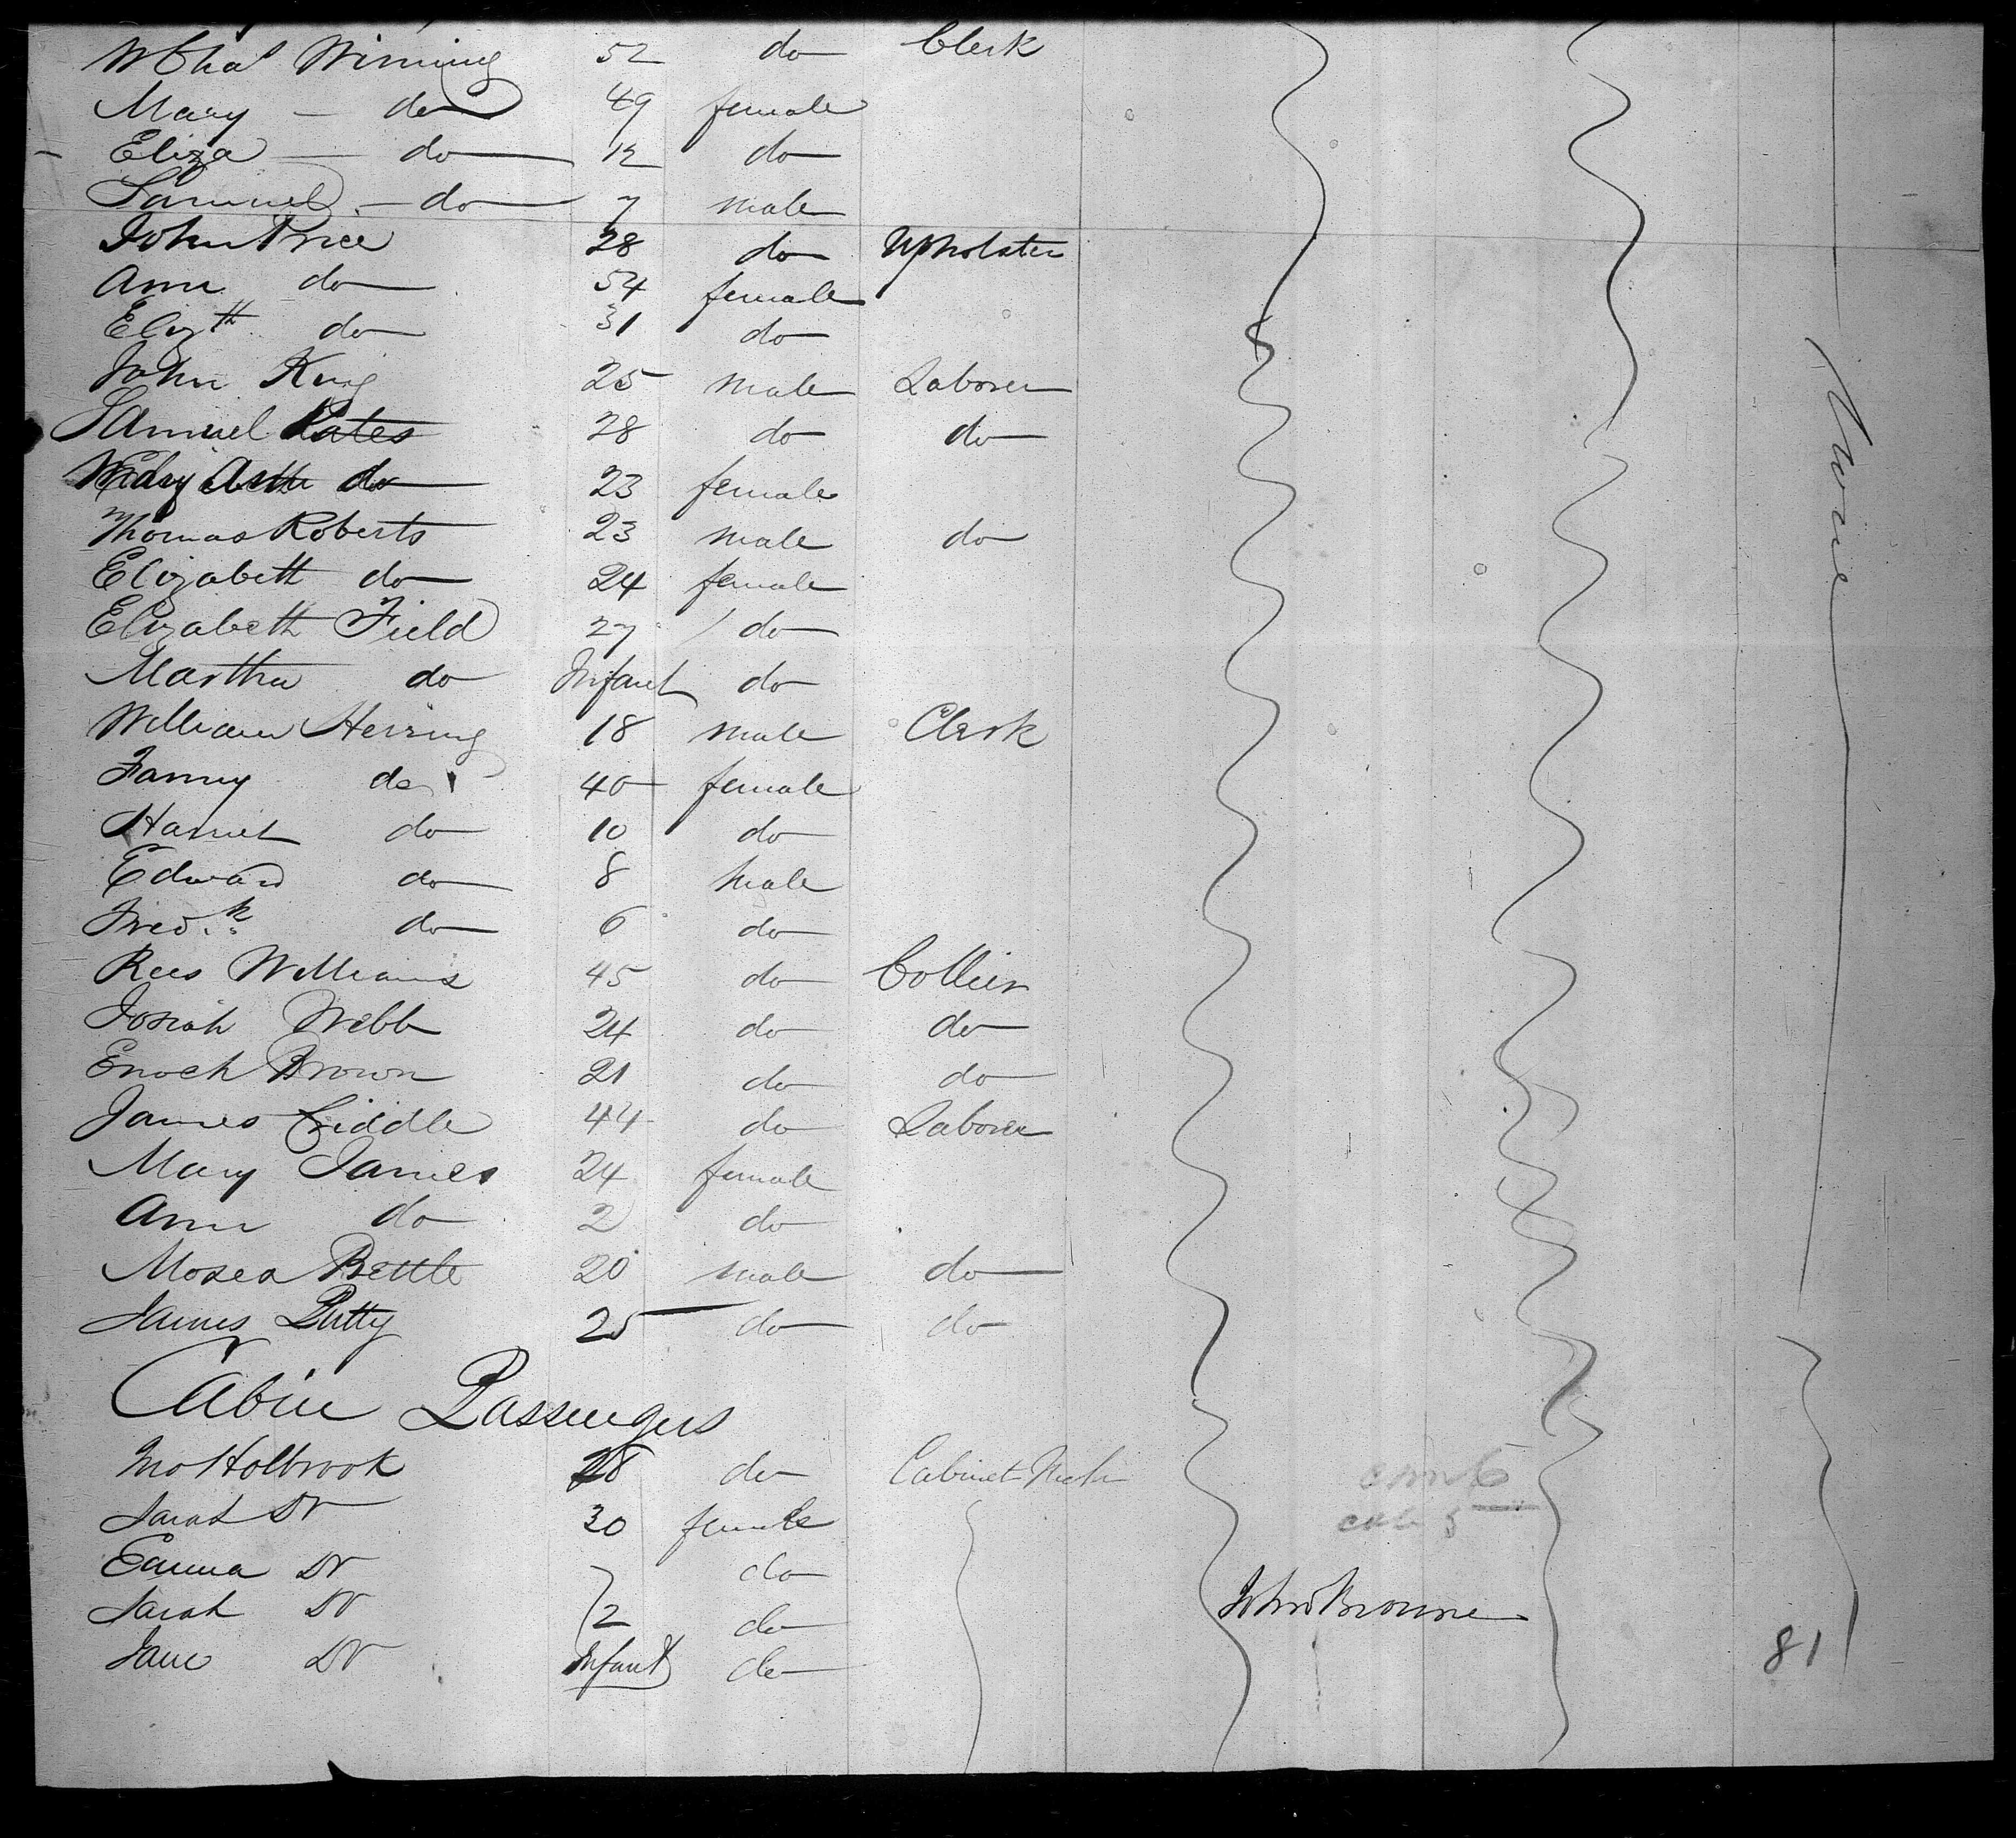 Winning 52 do Clerk
Mary - do 49 female
Eliza - do 12 do
Samuel - do 7 male
John Price 28 do Upholster
Ann do 54 female
Elizth do 31 do
John King 25 male Laborer
Samuel 28 do do
Mary Ann do 23 female
Thomas Roberts 23 male do
Elizabeth do 24 female
Elizabeth Field 27 do
Martha do Infant do
William Herring 18 male Clerk
Fanny do 40 female
Harriet do 10 do
Edward do 8 male
Fredk do 6 do
Rees Williams 45 do Collier
Josiah Webb 24 do do
Enoch Brown 21 do do
James Criddle 44 do Laborer
Mary James 24 female
Ann do 2 do
Moses Bettle 20 male do
James Patty 25 do do
Cabin Passengers
Jno Holbrook 28 do Cabinet
Sarah Do 30 female
Emma Do do
Sarah Do 2 do
Jane Do Infant do
None
John Browne
81